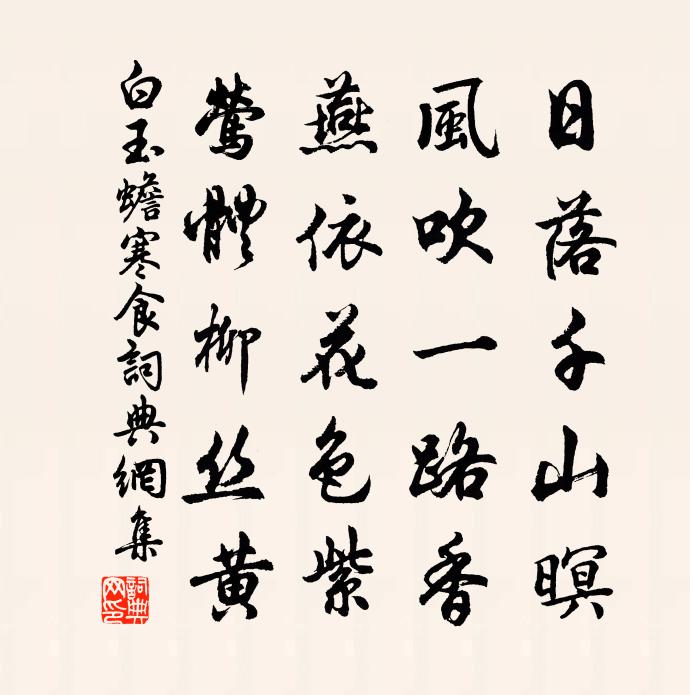 日落千山暝
風吹一路香
燕依花色紫
鶯體柳丝黄
白玉蟾寒食詞典網集
詞典網印